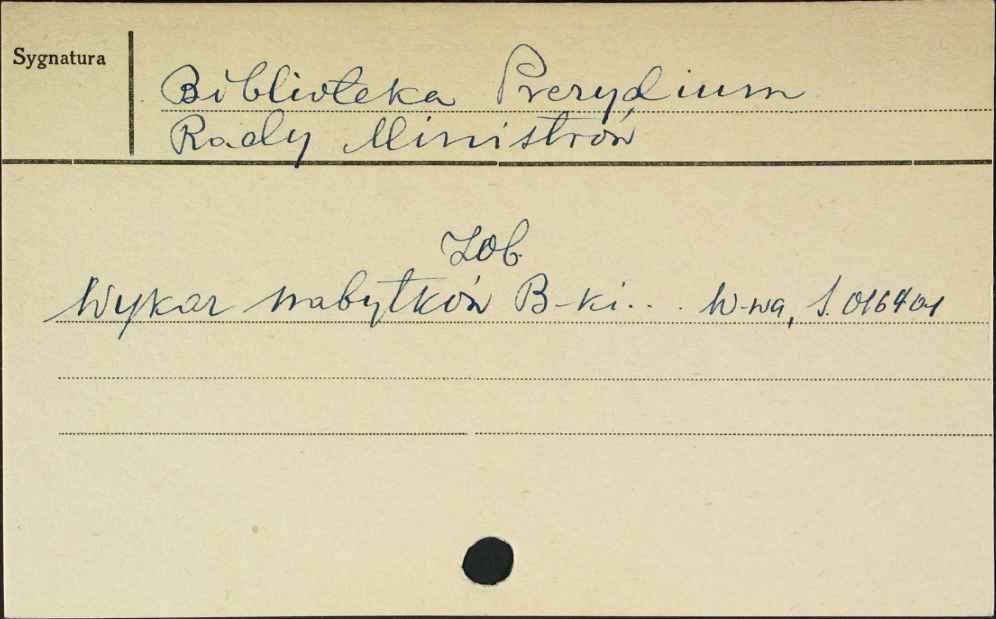 Sygnatura
Biblioteka Prezydium
Rady Ministrów
Zob.
Wykaz nabytków B-ki... W-wa, S. 016401